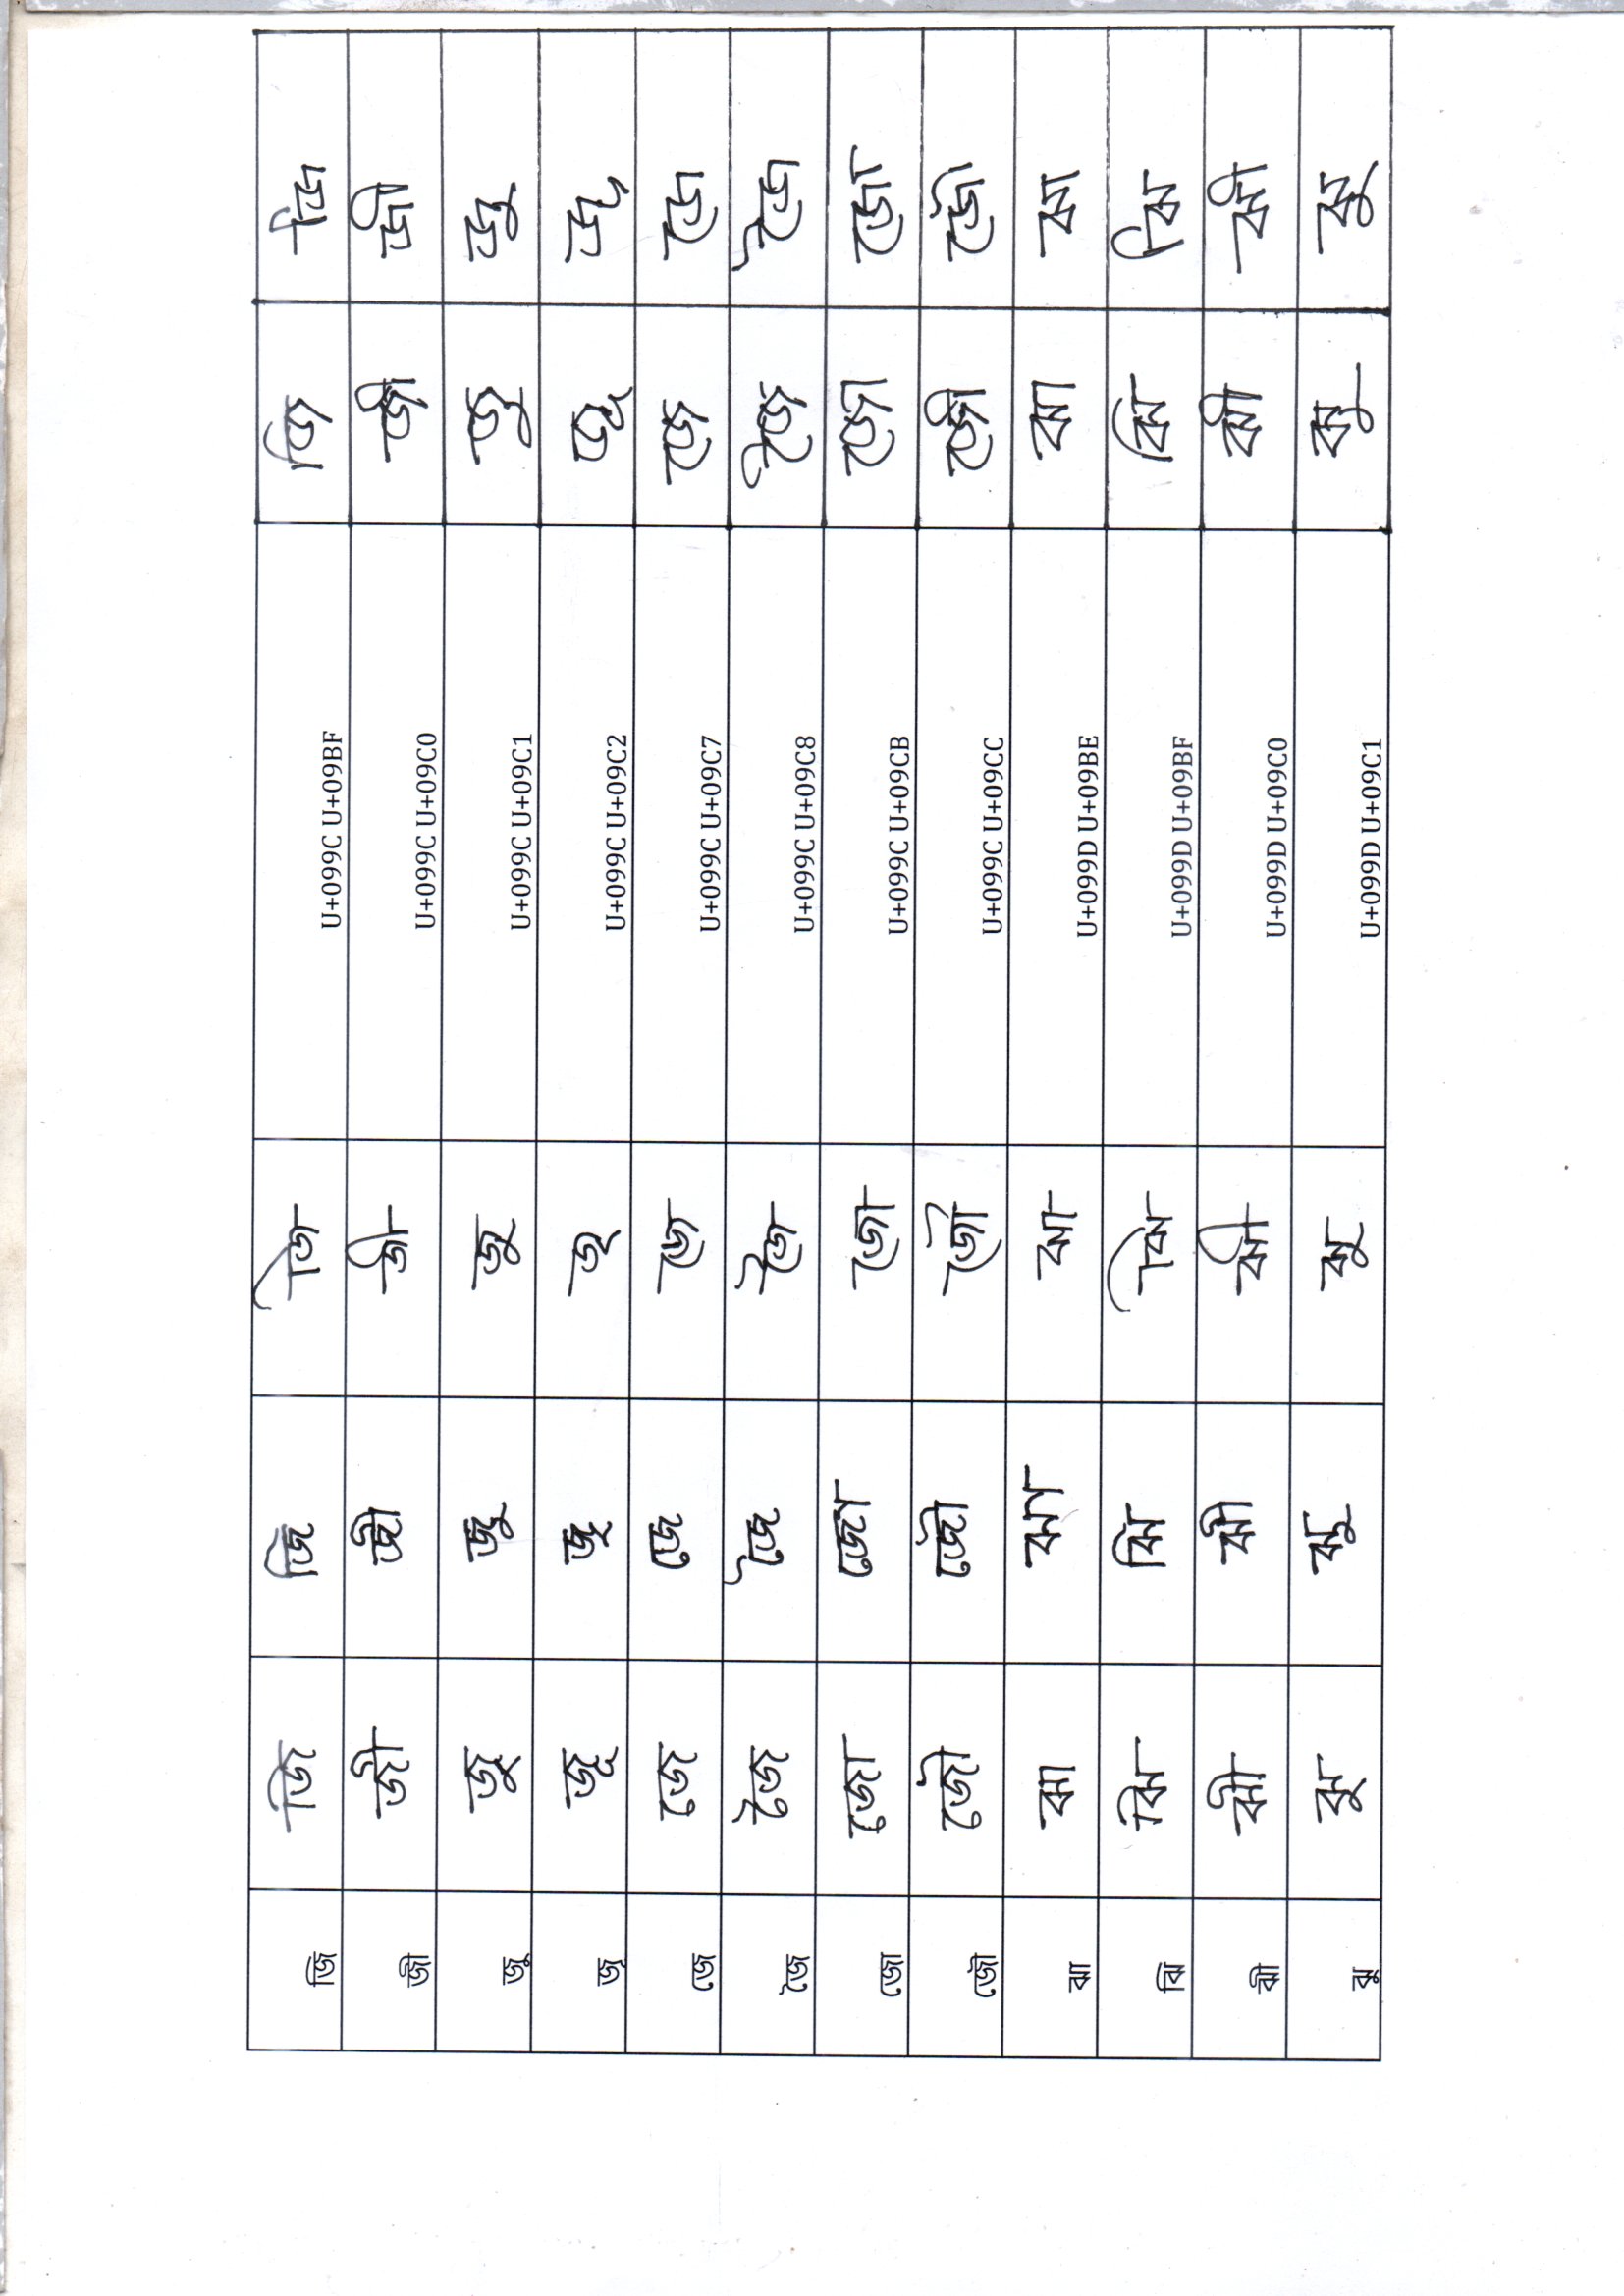 জি জি জি জি U+099C U+09BF জি জি
জী জী জী জী U+099C U+09C0 জী জী
জু জু জু জু U+099C U+09C1 জু জু
জূ জূ জূ জূ U+099C U+09C2 জূ জূ
জে জে জে জে U+099C U+09C7 জে জে
জৈ জৈ জৈ জৈ U+099C U+09C8 জৈ জৈ
জো জো জো জো U+099C U+09CB জো জো
জৌ জৌ জৌ জৌ U+099C U+09CC জৌ জৌ
ঝা ঝা ঝা ঝা U+099D U+09BE ঝা ঝা
ঝি ঝি ঝি ঝি U+099D U+09BF ঝি ঝি
ঝী ঝী ঝী ঝী U+099D U+09C0 ঝী ঝী
ঝু ঝু ঝু ঝু U+099D U+09C1 ঝু ঝু